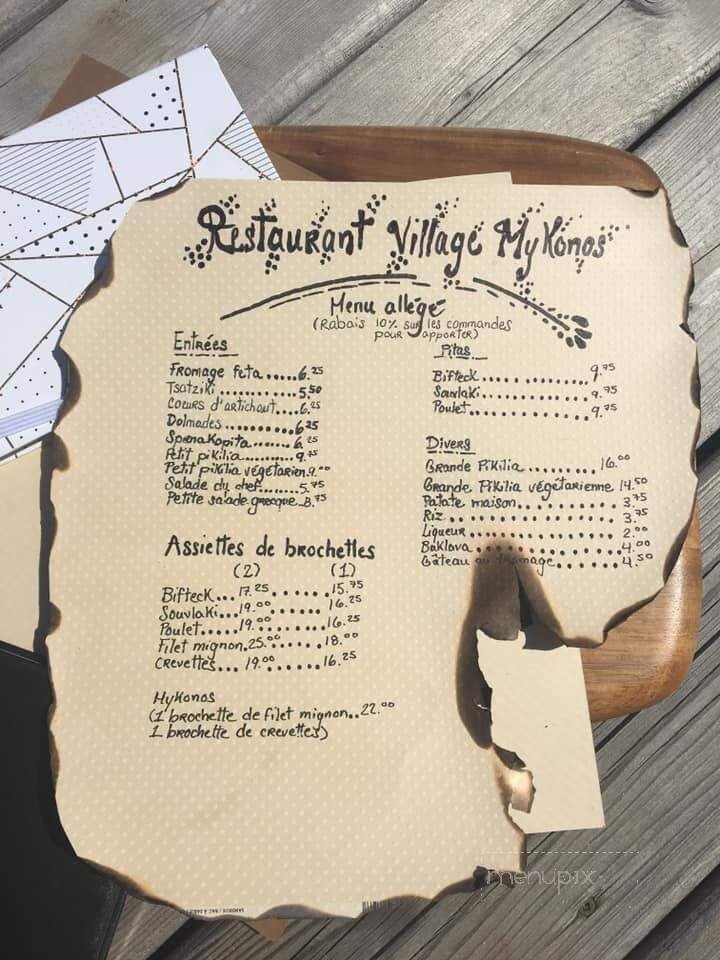 Restaurant Village Mykonos
Menu allégé
(Rabais 10% sur les commandes
pour apporter)
Entrées
Fromage feta......6.25
Tsatziki.......5.50
Coeurs d'artichaut....6.25
Dolmades.......6.25
Spanakopita........6.25
Petit pikilia.......9.75
Petit pikilia végétarien.9.00
Salade du chef.......5.75
Petite salade grecque..8.75
Assiettes de brochettes
(2) (1)
Bifteck... 17.25 ...... 15.75
Souvlaki...19.00 ...... 16.25
Poulet.....19.00 ...... 16.25
Filet mignon.25.00 ...... 18.00
Crevettes... 19.00 ...... 16.25
Mykonos
(1 brochette de filet mignon..22.00
1 brochette de crevettes)
Pitas
Bifteck.............. 9.75
Souvlaki.............. 9.75
Poulet.............. 9.75
Divers
Grande Pikilia........ 16.00
Grande Pikilia végétarienne 14.50
Patate maison......... 3.75
Riz................. 3.75
Liqueur.............. 2.00
Baklava.............. 4.00
Gâteau au fromage........ 4.50
menupix